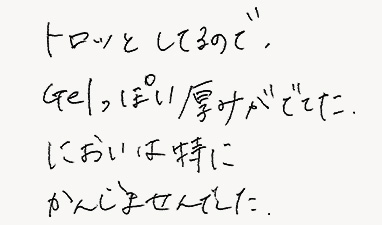 トロッとしてるので、
Gelっぽい厚みがでてた.
においは特に
かんじませんでした.